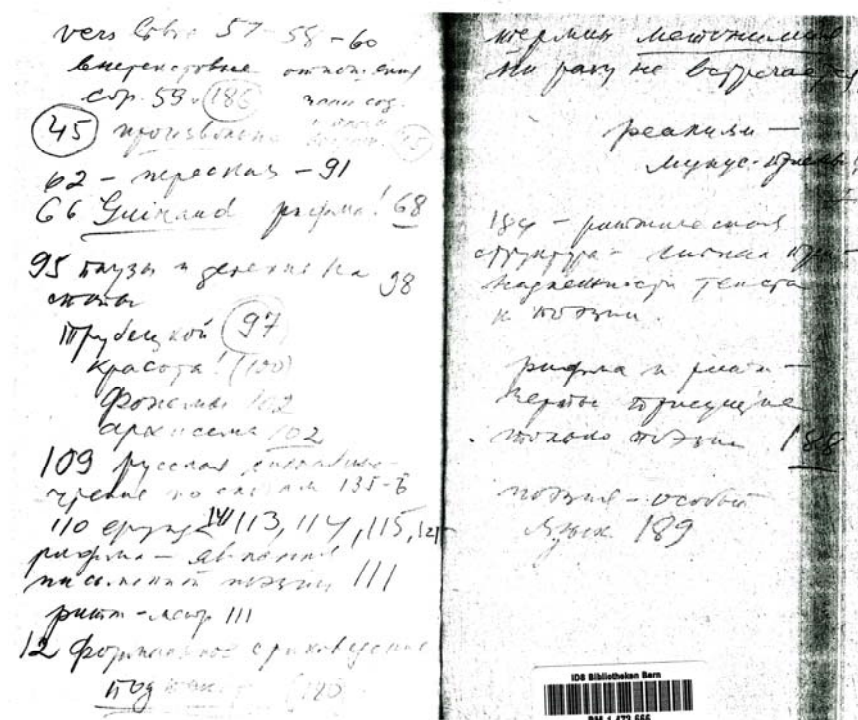 vers libre 57-58-60
внетекстовые отношения
стр. 59. 186
45 произвольно
62 - пересказ - 91
66 Guiraud рифма! 68
95 паузы и деление на 98
стопы
Трубецкой 97
красота! (100)
фонемы 102
архисема 102
109 русская
чтение по слогам 135-6
110 ерунда 141 113, 114, 115, 121
рифма - явление
письменной поэзии 111
ритм - метр 111
12 формальное стиховедение
под 120
термин метонимия
ни разу не встречается
реализм -
минус-приемы
184 - ритмическая
структура - сигнал при-
надлежности текста
к поэзии.
рифма и ритм -
черты присущие
только поэзии 188
поэзия - особый
язык 189
IDS Bibliotheken Bern
BM 1 473 666